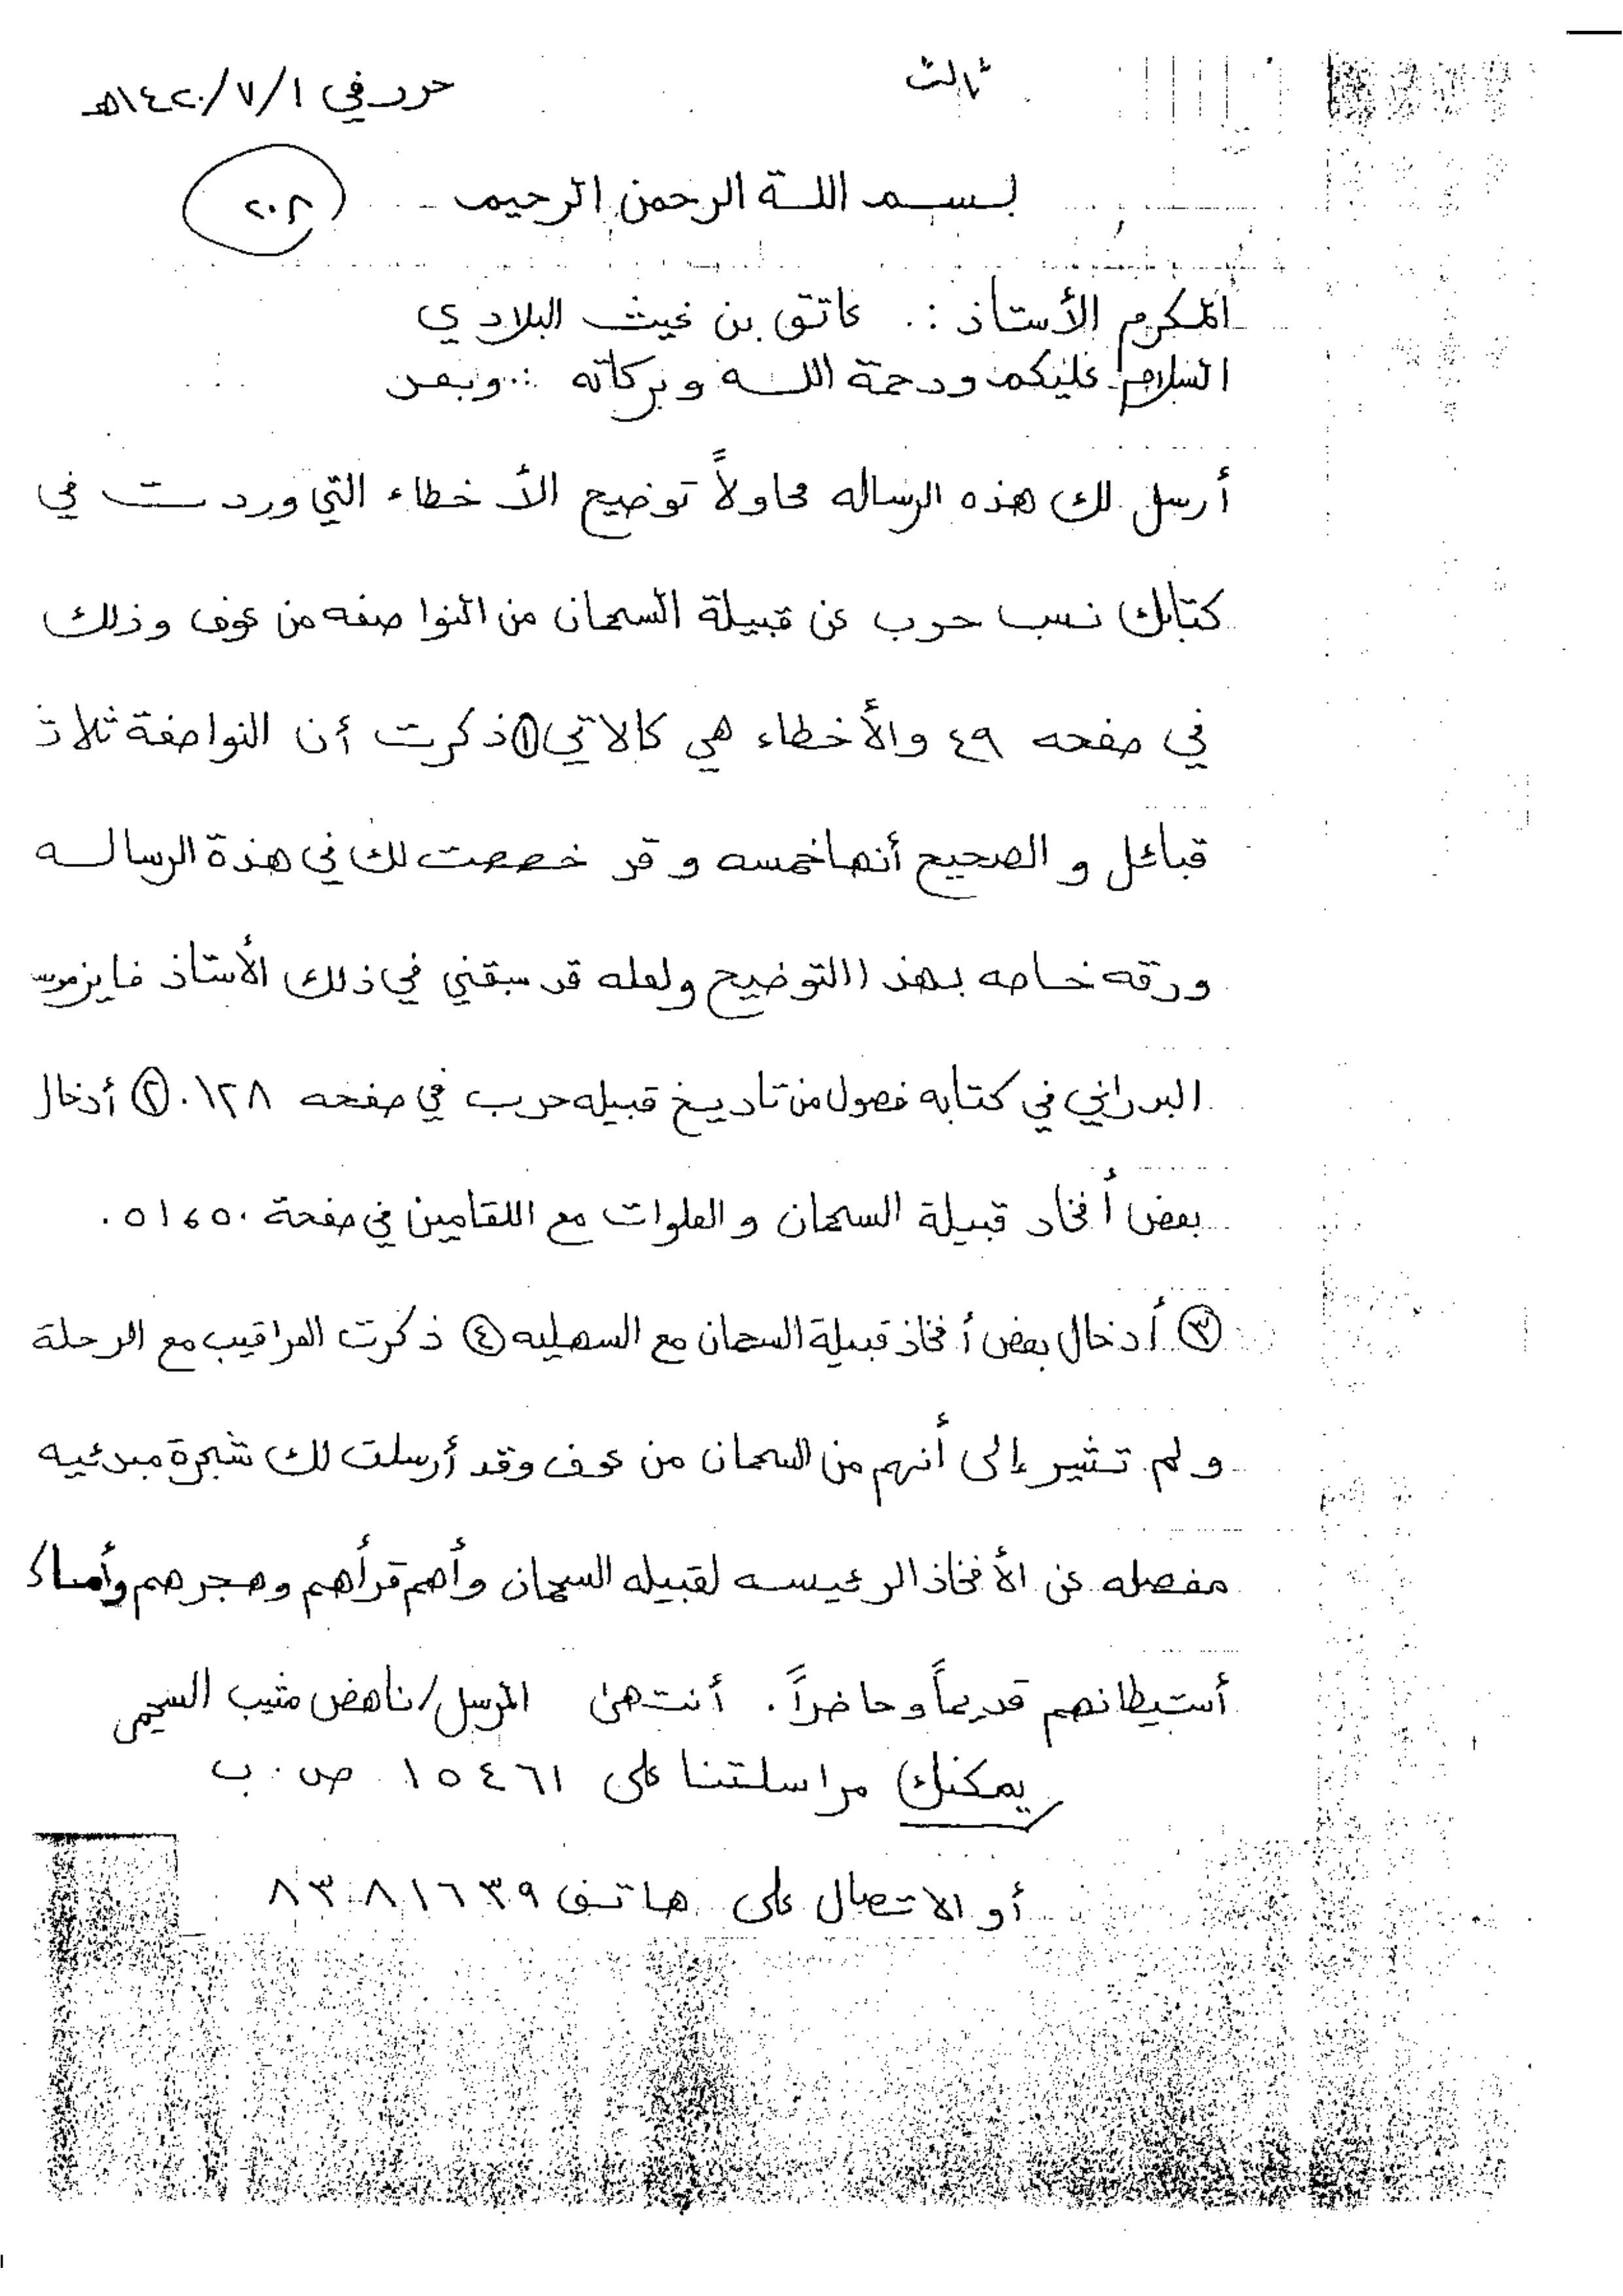 ثالث
حرر في ١/٧/١٤٢٠هـ
بسم اللة الرحمن الرحيم
٢٠٨
المكرم الأستاذ :. عاتق بن غيث البلادي
السلام عليكم ورحمة اللـه وبركاته :.. وبعـن
أرسل لك هذه الرساله محاولاً توضيح الأخطاء التي وردت في
كتابك نسب حرب عن قبيلة السحمان من النواصفه من عوف وذلك
في صفحه ٤٩ والأخطاء هي كالاتي ① ذكرت أن النواصفة ثلاث
قبائل و الصحيح أنها خمسه و قد خصصت لك في هذة الرساله
ورقه خاصه بهذا التوضيح ولعله قد سبقني في ذلك الأستاذ فايز موسـ
البدراني في كتابه فصول من تاريخ قبيله حرب في صفحه ١٢٨. ② أدخال
بعض أفخاد قبيلة السحمان و العلوات مع اللقامين في صفحة ٥٠، ٥١.
③ أدخال بعض أفخاذ قبيلة السحمان مع السهليه ④ ذكرت العراقيب مع الرحلة
و لم تشير إلى أنهم من السحمان من عوف وقد أرسلت لك شجرة مبدئيه
مفصله عن الأفخاذ الرئيسه لقبيله السحمان وأهم قرأهم وهجرهم وأماكـ
أستيطانهم قديماً وحاضراً. أنتهى المرسل/ناهض مثيب السحيمي
يمكنك مراسلتنا على ١٥٤٦١ ص.ب
أو الاتصال على هاتف ٨٣٨١٦٣٩